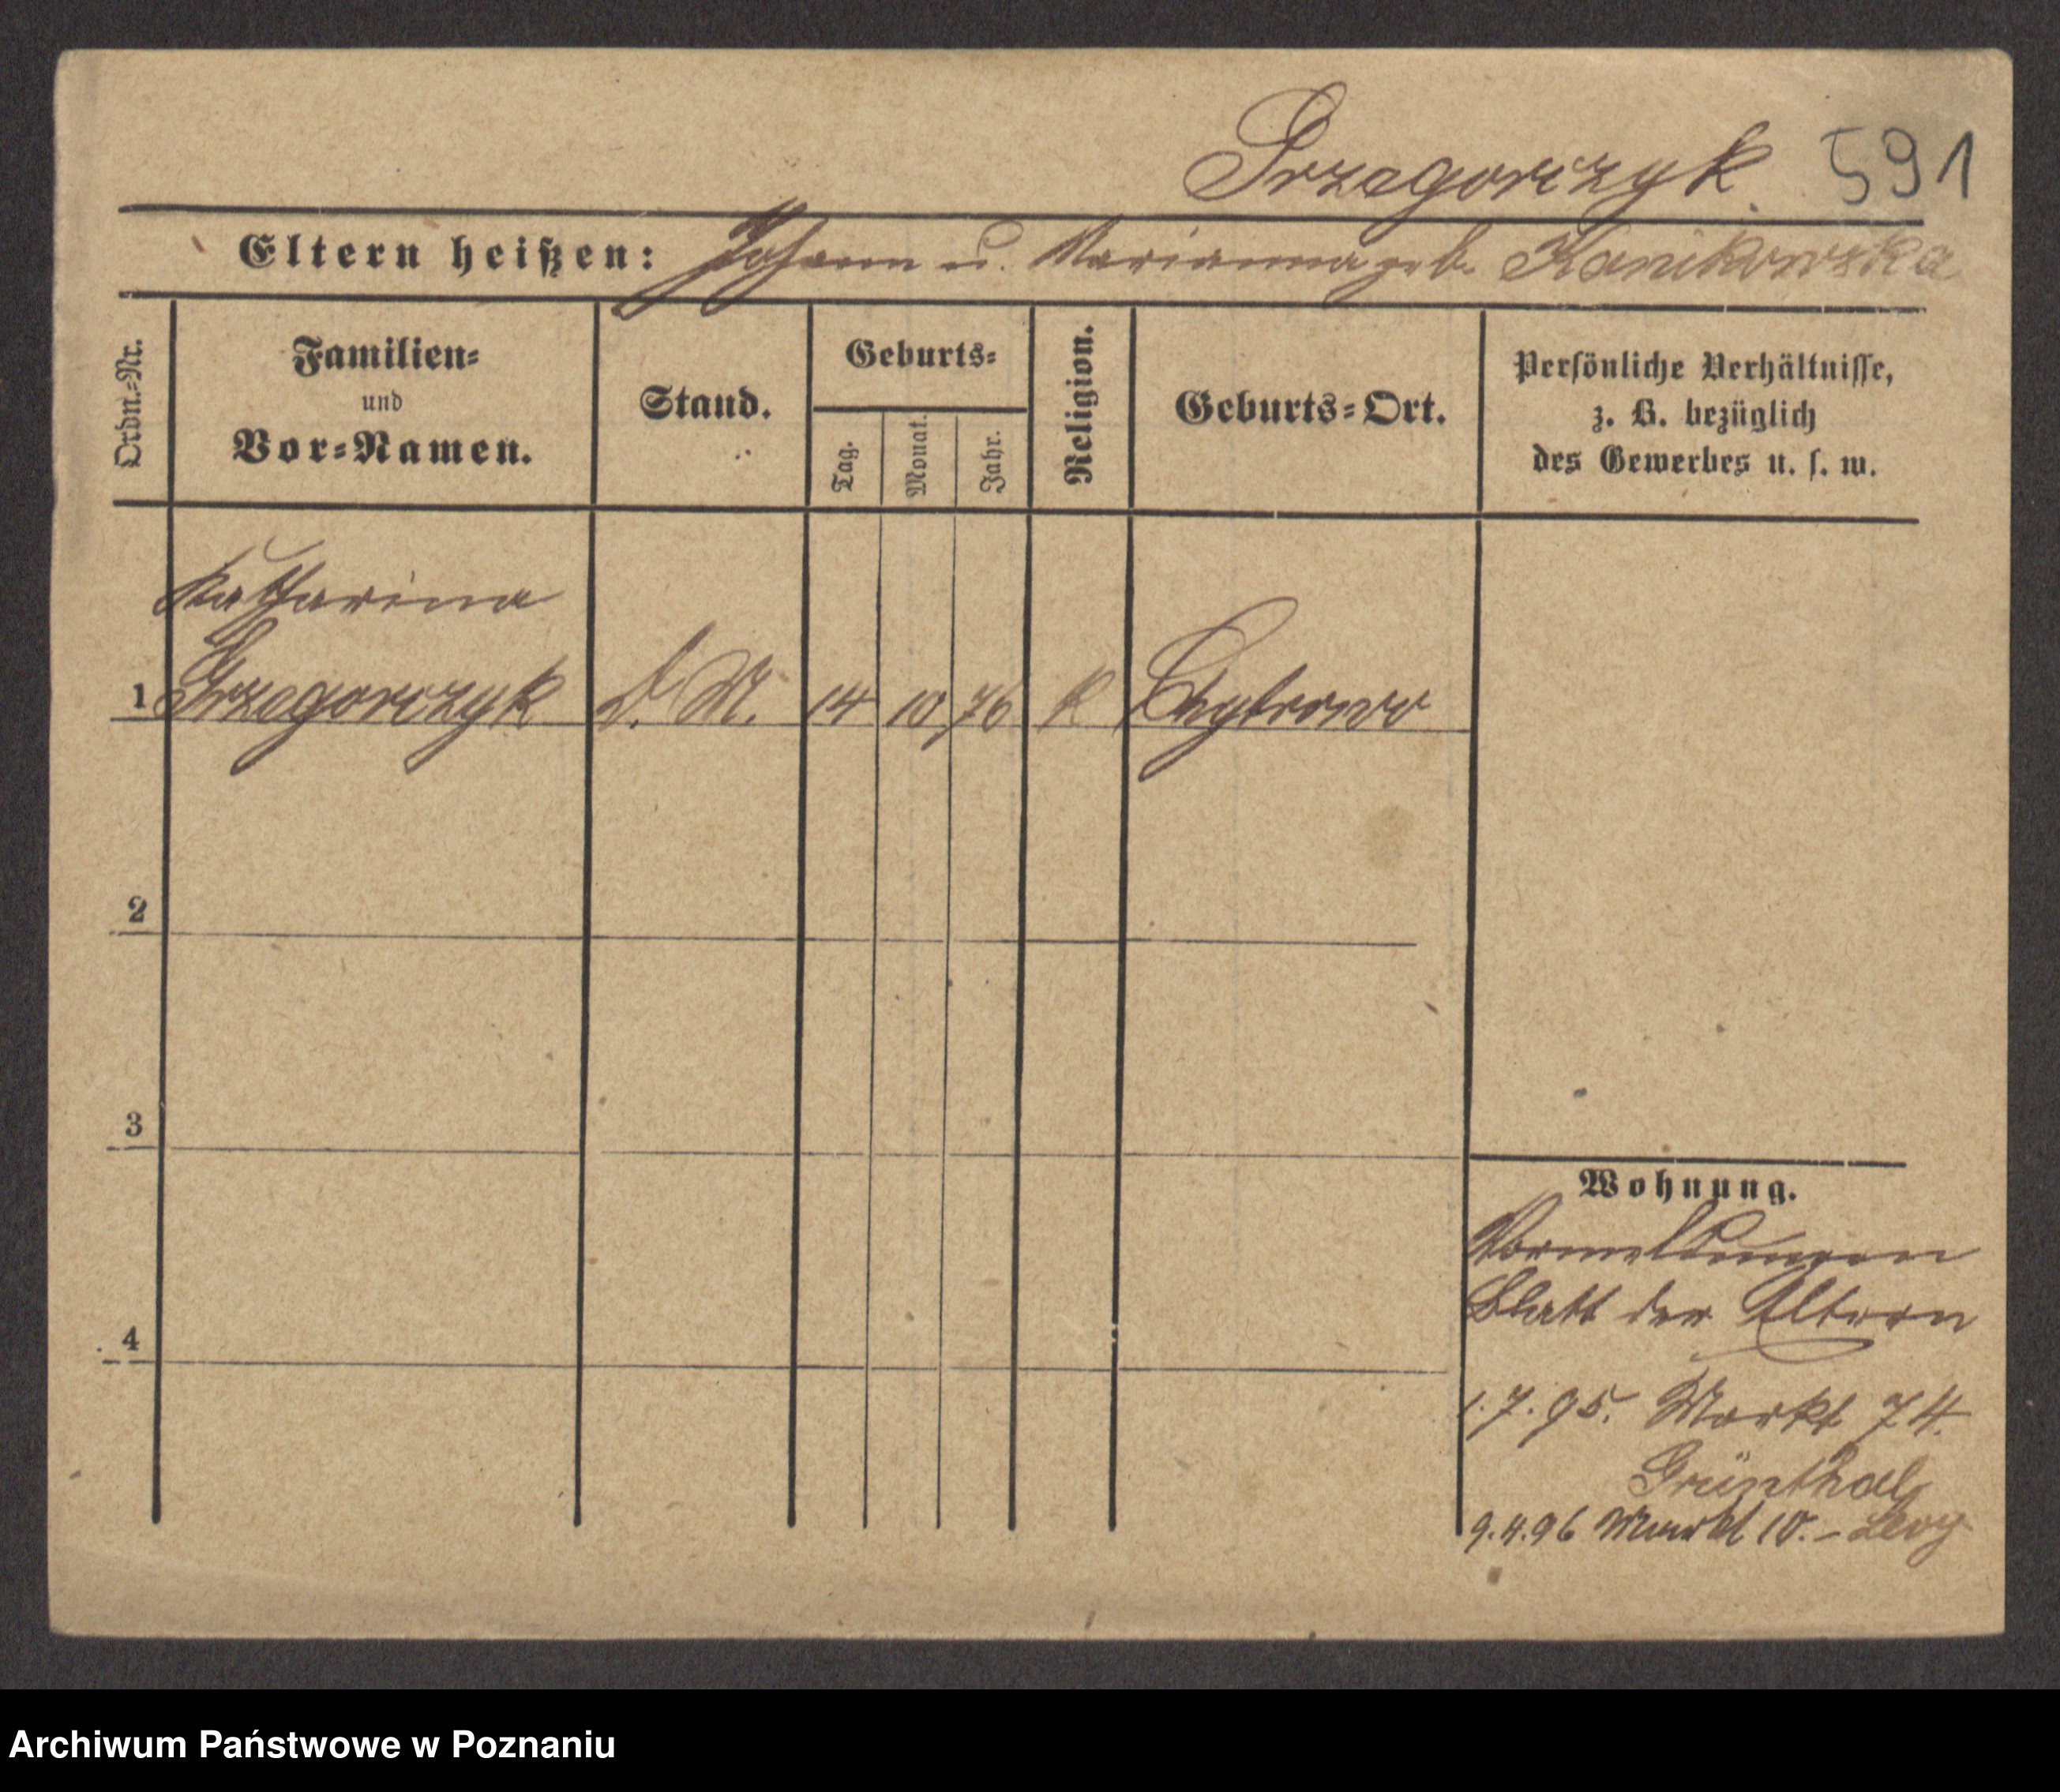 Grzegorczyk 591
Eltern heißen: Johann u. Marianna geb. Kanikowska
Ordn.=Nr.
Familien=
und
Vor=Namen.
Stand.
Geburts=
Tag.
Monat.
Jahr.
Religion.
Geburts=Ort.
Persönliche Verhältnisse,
z. B. bezüglich
des Gewerbes u. s. w.
Katharina
1 Grzegorczyk D. M. 14 10 76 K Chytrowo
2
3
4
Wohnung.
Vormeldungen
Blatt der Eltern
1.7.95. Markt 74.
Grünthal
9.4.96 Markt 10. – Levy
Archiwum Państwowe w Poznaniu